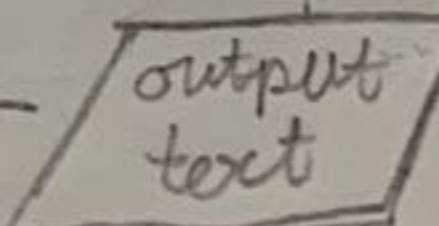 output
text